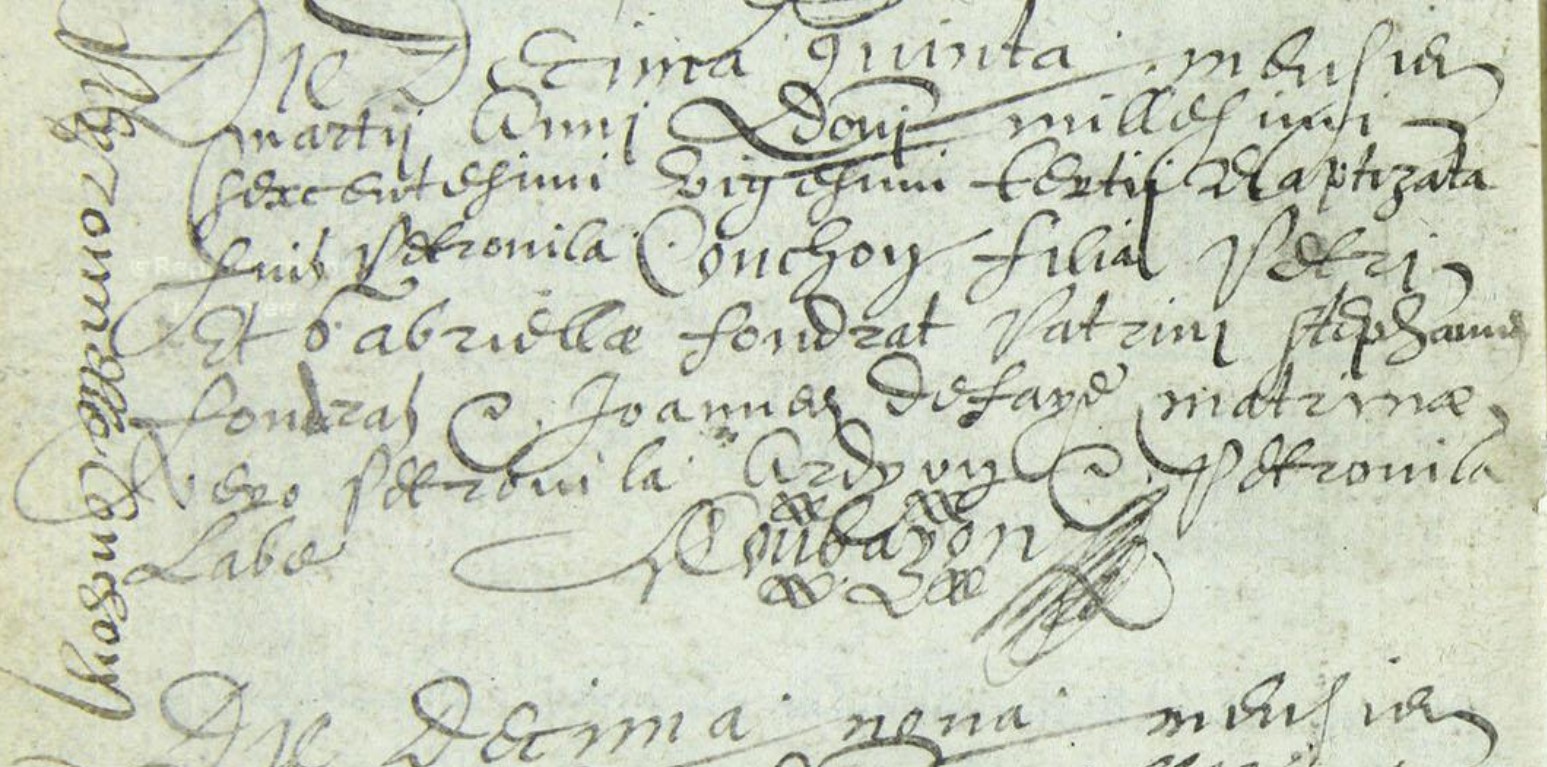 Petronille Conchon
Die Decima quinta mensis
martij Anni Domi millesimi
sexcentesimi vigesimi tertij Baptizata
fuit Petronila Conchon filia Petri
Et Gabriellæ fondrat Patrini Stephanus
fondrat & Joannes Defaye matrinæ
vero Petronila Ardoun & Petronila
Labe
Die Decima nona mensis